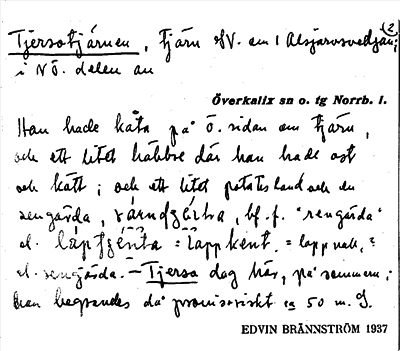 (2
Tjersatjärnen, tjärn SV. om 1 Alsjärvsvedjan;
i NÖ. delen av
Överkalix sn o. tg Norrb. l.
Han hade kåta på Ö. sidan om tjärn,
och ett litet härbre där han hade ost
och kött; och ett litet potatisland och en
rengärda, bf. f. "rengärda"
el. = lappkent. = lappvall,
el. rengärda. – Tjersa dog här, på sommaren;
han begravdes då provisoriskt ca 50 m.
EDVIN BRÄNNSTRÖM 1937